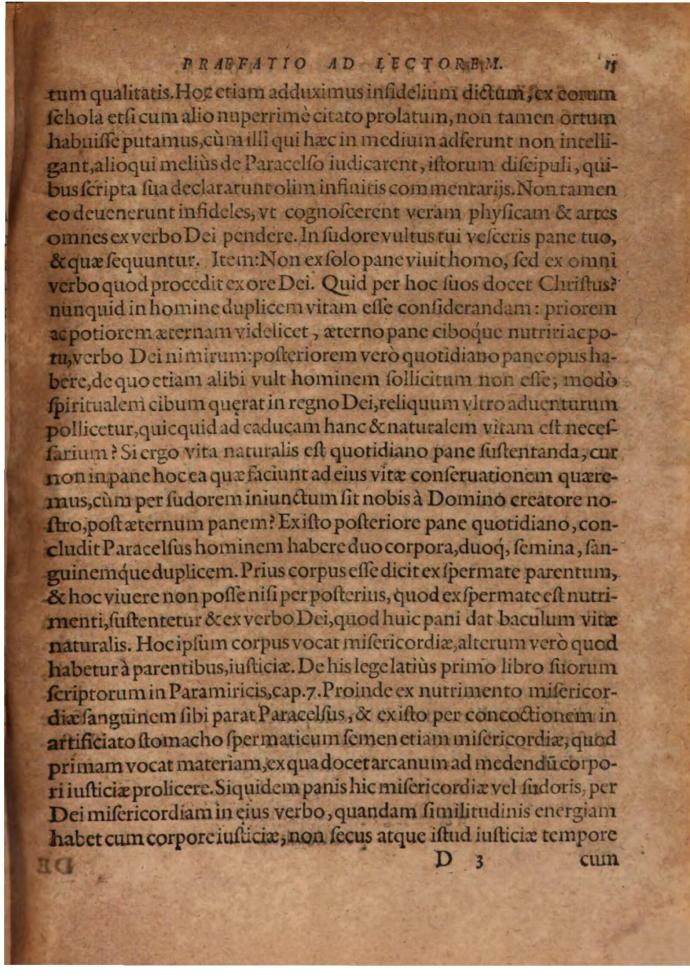 PRAEFATIO AD LECTOREM.
tum qualitatis. Hoc etiam adduximus infidelium dictum, ex eorum
ſchola etſi cum alio nuperrimè citato prolatum, non tamen ortum
habuiſſe putamus, cùm illi qui hæc in medium adferunt non intelli-
gant, alioqui meliùs de Paracelſo iudicarent, iſtorum diſcipuli, qui-
bus ſcripta ſua declararunt olim infinitis commentarijs. Non tamen
eo deuenerunt infideles, vt cognoſcerent veram phyſicam & artes
omnes ex verbo Dei pendere. In ſudore vultus tui veſceris pane tuo,
& quæ ſequuntur. Item: Non ex ſolo pane viuit homo, ſed ex omni
verbo quod procedit ex ore Dei. Quid per hoc ſuos docet Chriſtus?
nunquid in homine duplicem vitam eſſe conſiderandam: priorem
ac potiorem æternam videlicet, æterno pane ciboque nutriri ac po-
tu, verbo Dei nimirum: poſteriorem verò quotidiano pane opus ha-
bere, de quo etiam alibi vult hominem ſollicitum non eſſe, modò
ſpiritualem cibum quęrat in regno Dei, reliquum vltro aduenturum
pollicetur, quicquid ad caducam hanc & naturalem vitam eſt neceſ-
ſarium? Si ergo vita naturalis eſt quotidiano pane ſuſtentanda, cur
non in pane hoc ea quæ faciunt ad eius vitæ conſeruationem quære-
mus, cùm per ſudorem iniunctum ſit nobis à Domino creatore no-
ſtro, poſt æternum panem? Ex iſto poſteriore pane quotidiano, con-
cludit Paracelſus hominem habere duo corpora, duoq́, ſemina, ſan-
guinemque duplicem. Prius corpus eſſe dicit ex ſpermate parentum,
& hoc viuere non poſſe niſi per poſterius, quod ex ſpermate eſt nutri-
menti, ſuſtentetur & ex verbo Dei, quod huic pani dat baculum vitæ
naturalis. Hoc ipſum corpus vocat miſericordiæ, alterum verò quod
habetur à parentibus, iuſticiæ. De his lege latiùs primo libro ſuorum
ſcriptorum in Paramiricis, cap. 7. Proinde ex nutrimento miſericor-
diæ ſanguinem ſibi parat Paracelſus, & ex iſto per concoctionem in
artificiato ſtomacho ſpermaticum ſemen etiam miſericordiæ, quod
primam vocat materiam, ex qua docet arcanum ad medendũ corpo-
ri iuſticiæ prolicere. Siquidem panis hic miſericordiæ vel ſudoris, per
Dei miſericordiam in eius verbo, quandam ſimilitudinis energiam
habet cum corpore iuſticiæ, non ſecus atque iſtud iuſticiæ tempore
D 3 cum